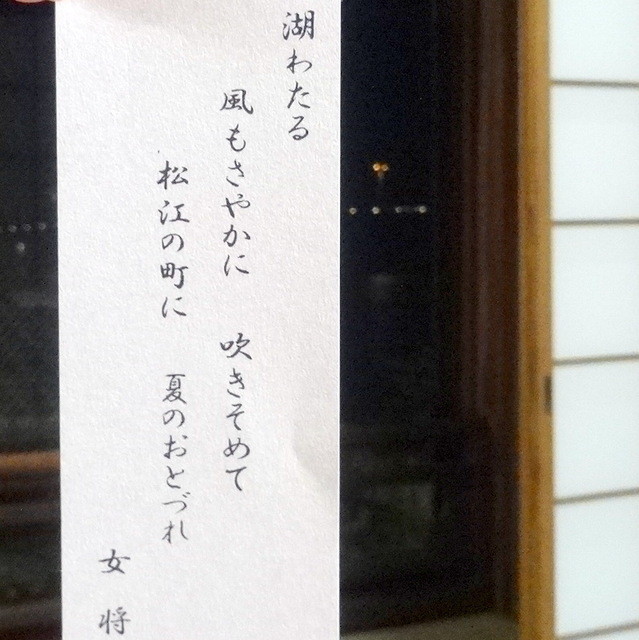 湖わたる
風もさやかに　吹きそめて
松江の町に　夏のおとづれ
女将